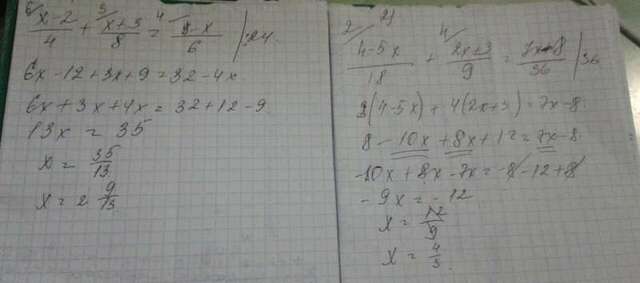 6/ x-2/4 + 3/ x+3/8 = 4/ 8-x/6 | ·24
6x-12+3x+9=32-4x
6x+3x+4x=32+12-9
13x = 35
x = 35/13
x = 2 9/13
2)
2/ 4-5x/18 + 4/ 2x+3/9 = 7x-8/36 | 36
2(4-5x)+4(2x+3)=7x-8
8-10x+8x+12=7x-8
-10x+8x-7x=-8-12+8
-9x=-12
x = 12/9
x = 4/3